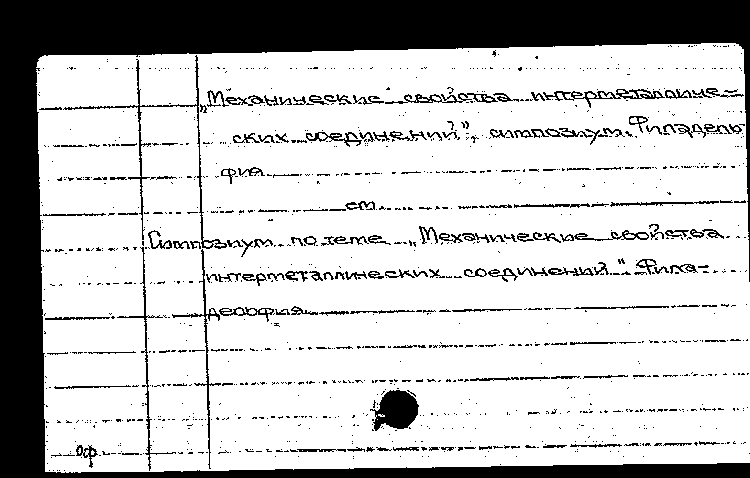 „Механические свойства интерметалличе-
ских соединений", симпозиум. Филадель
фия
см.
Симпозиум по теме „Механические свойства
интерметаллических соединений". Фила-
дельфия.
оф